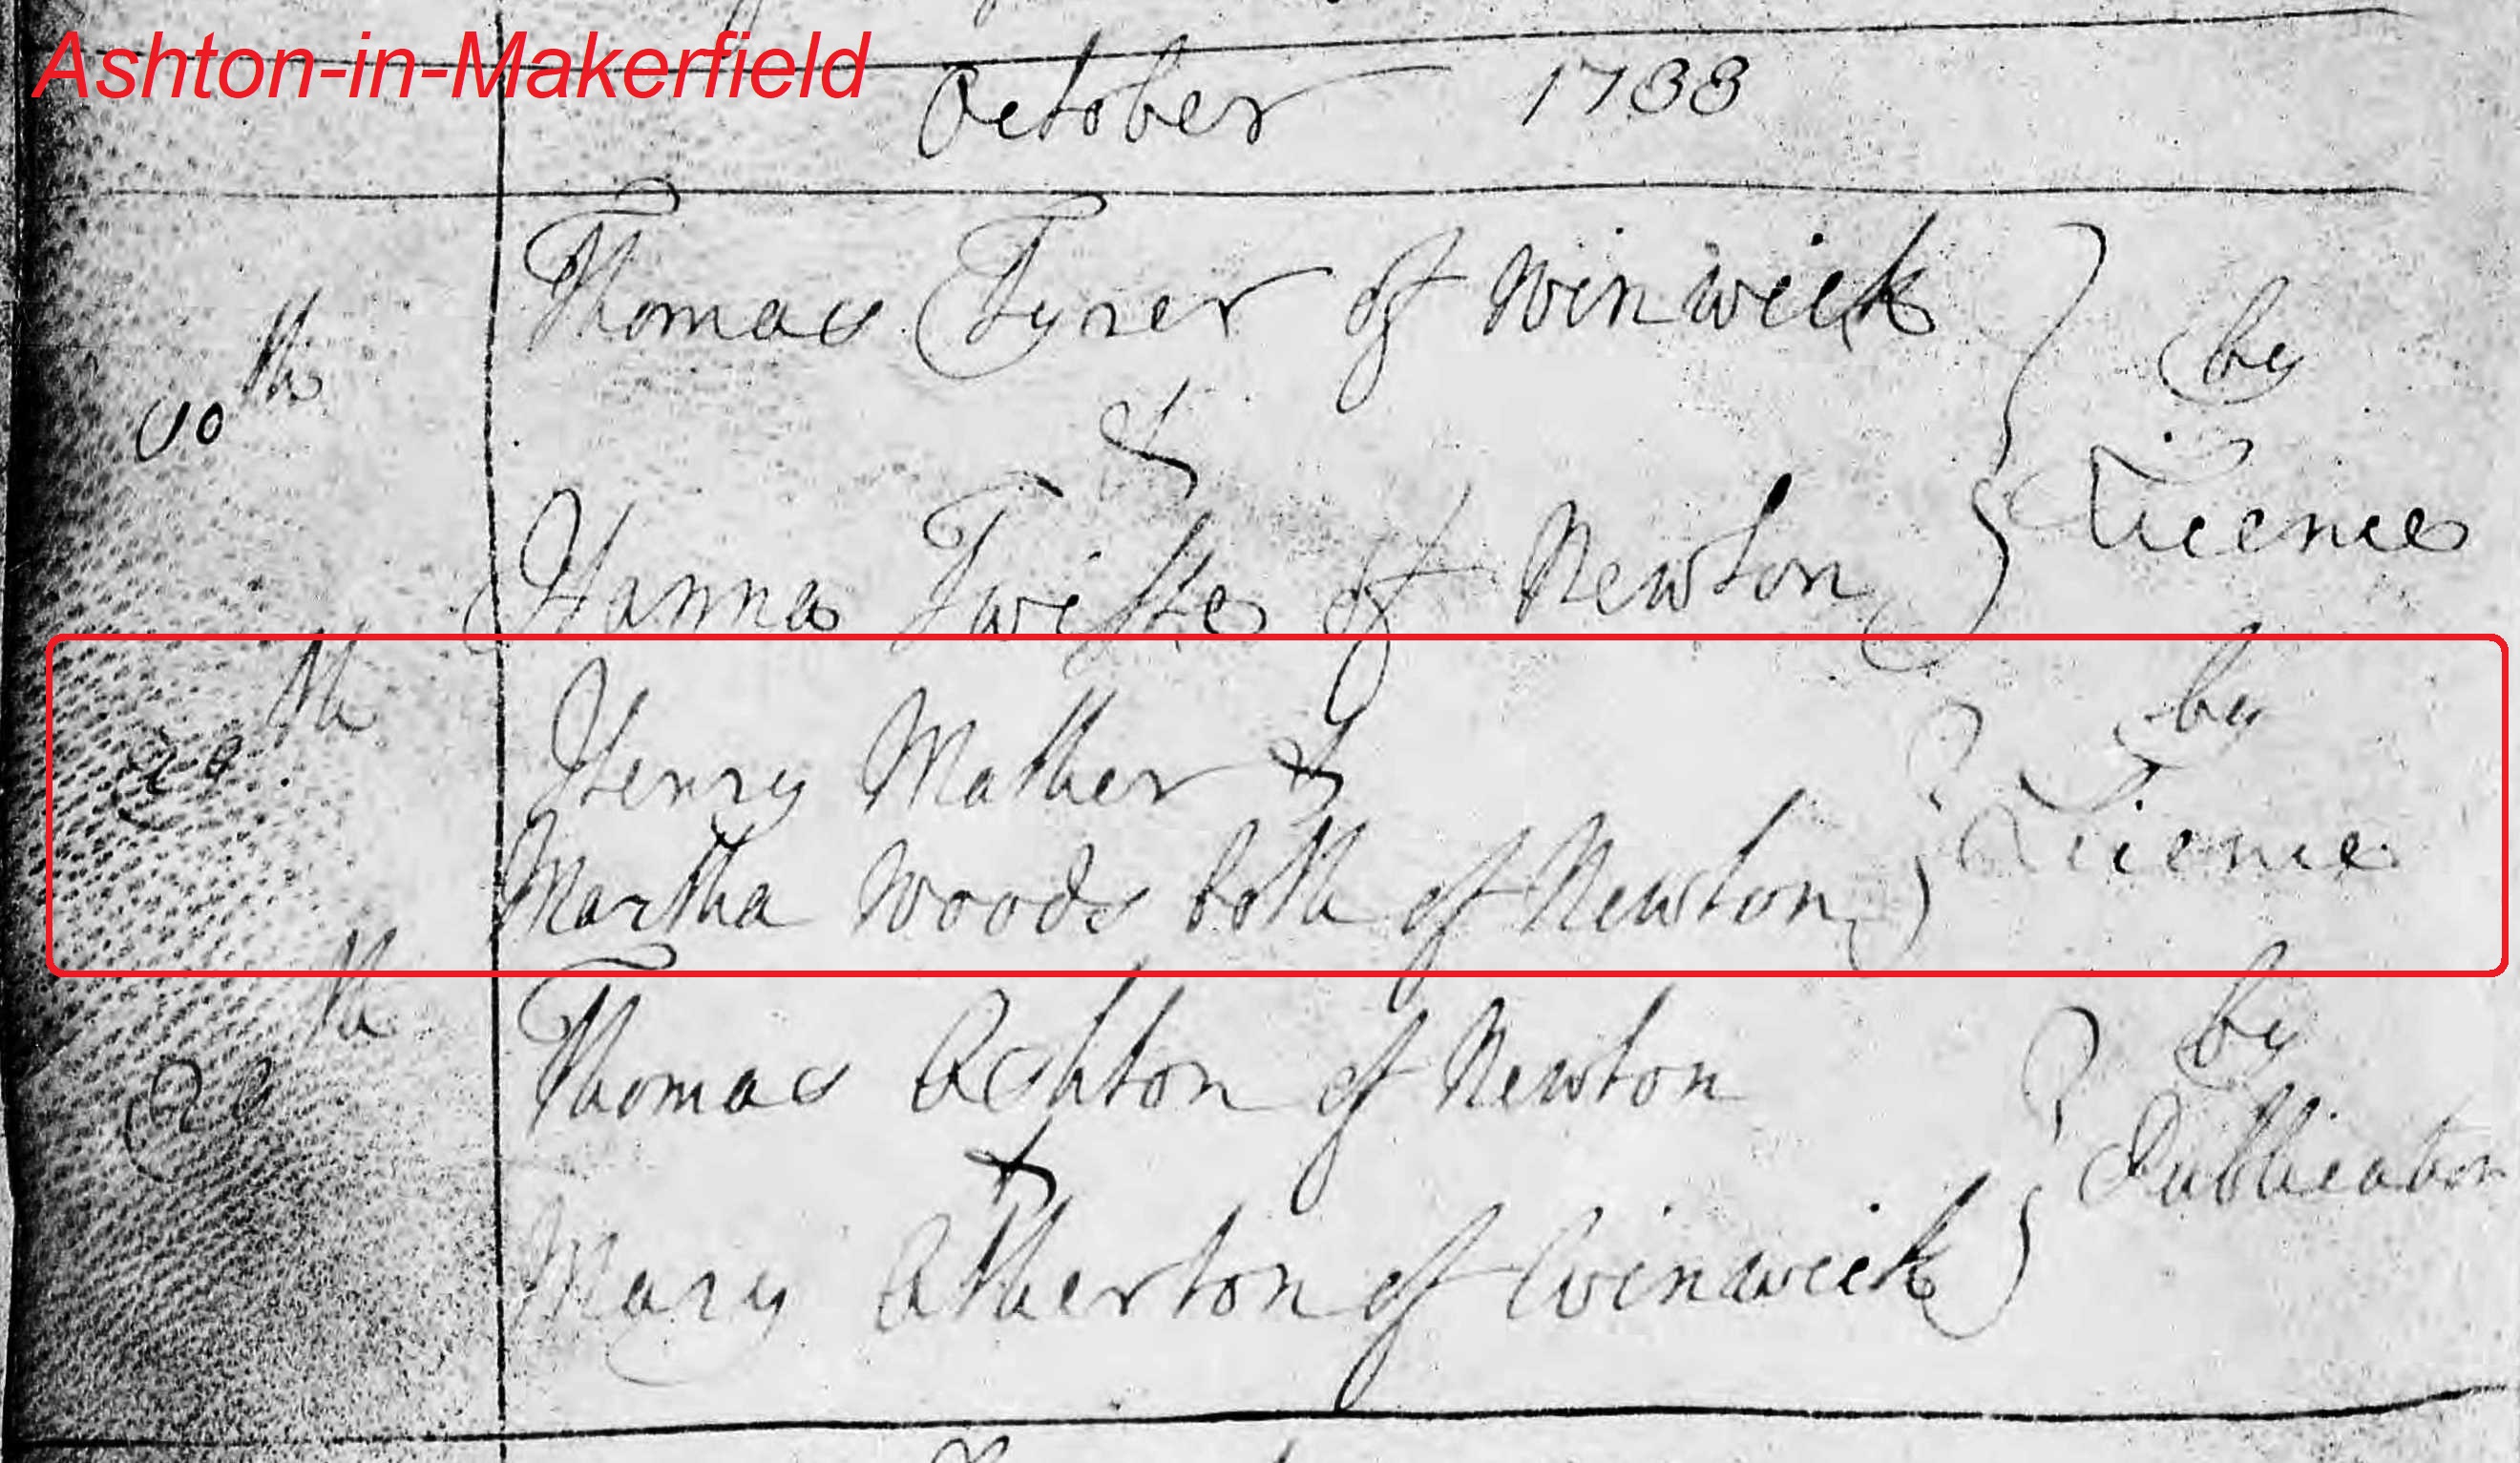 Ashton-in-Makerfield
October 1733
Thomas Tyrer of Winwick
10th
by
&
Licence
Hanna Twisse of Newton
Henry Mather &
by
20th
Licence
Martha Woods both of Newton
Thomas Ashton of Newton
by
&
Publication
Mary Atherton of Winwick